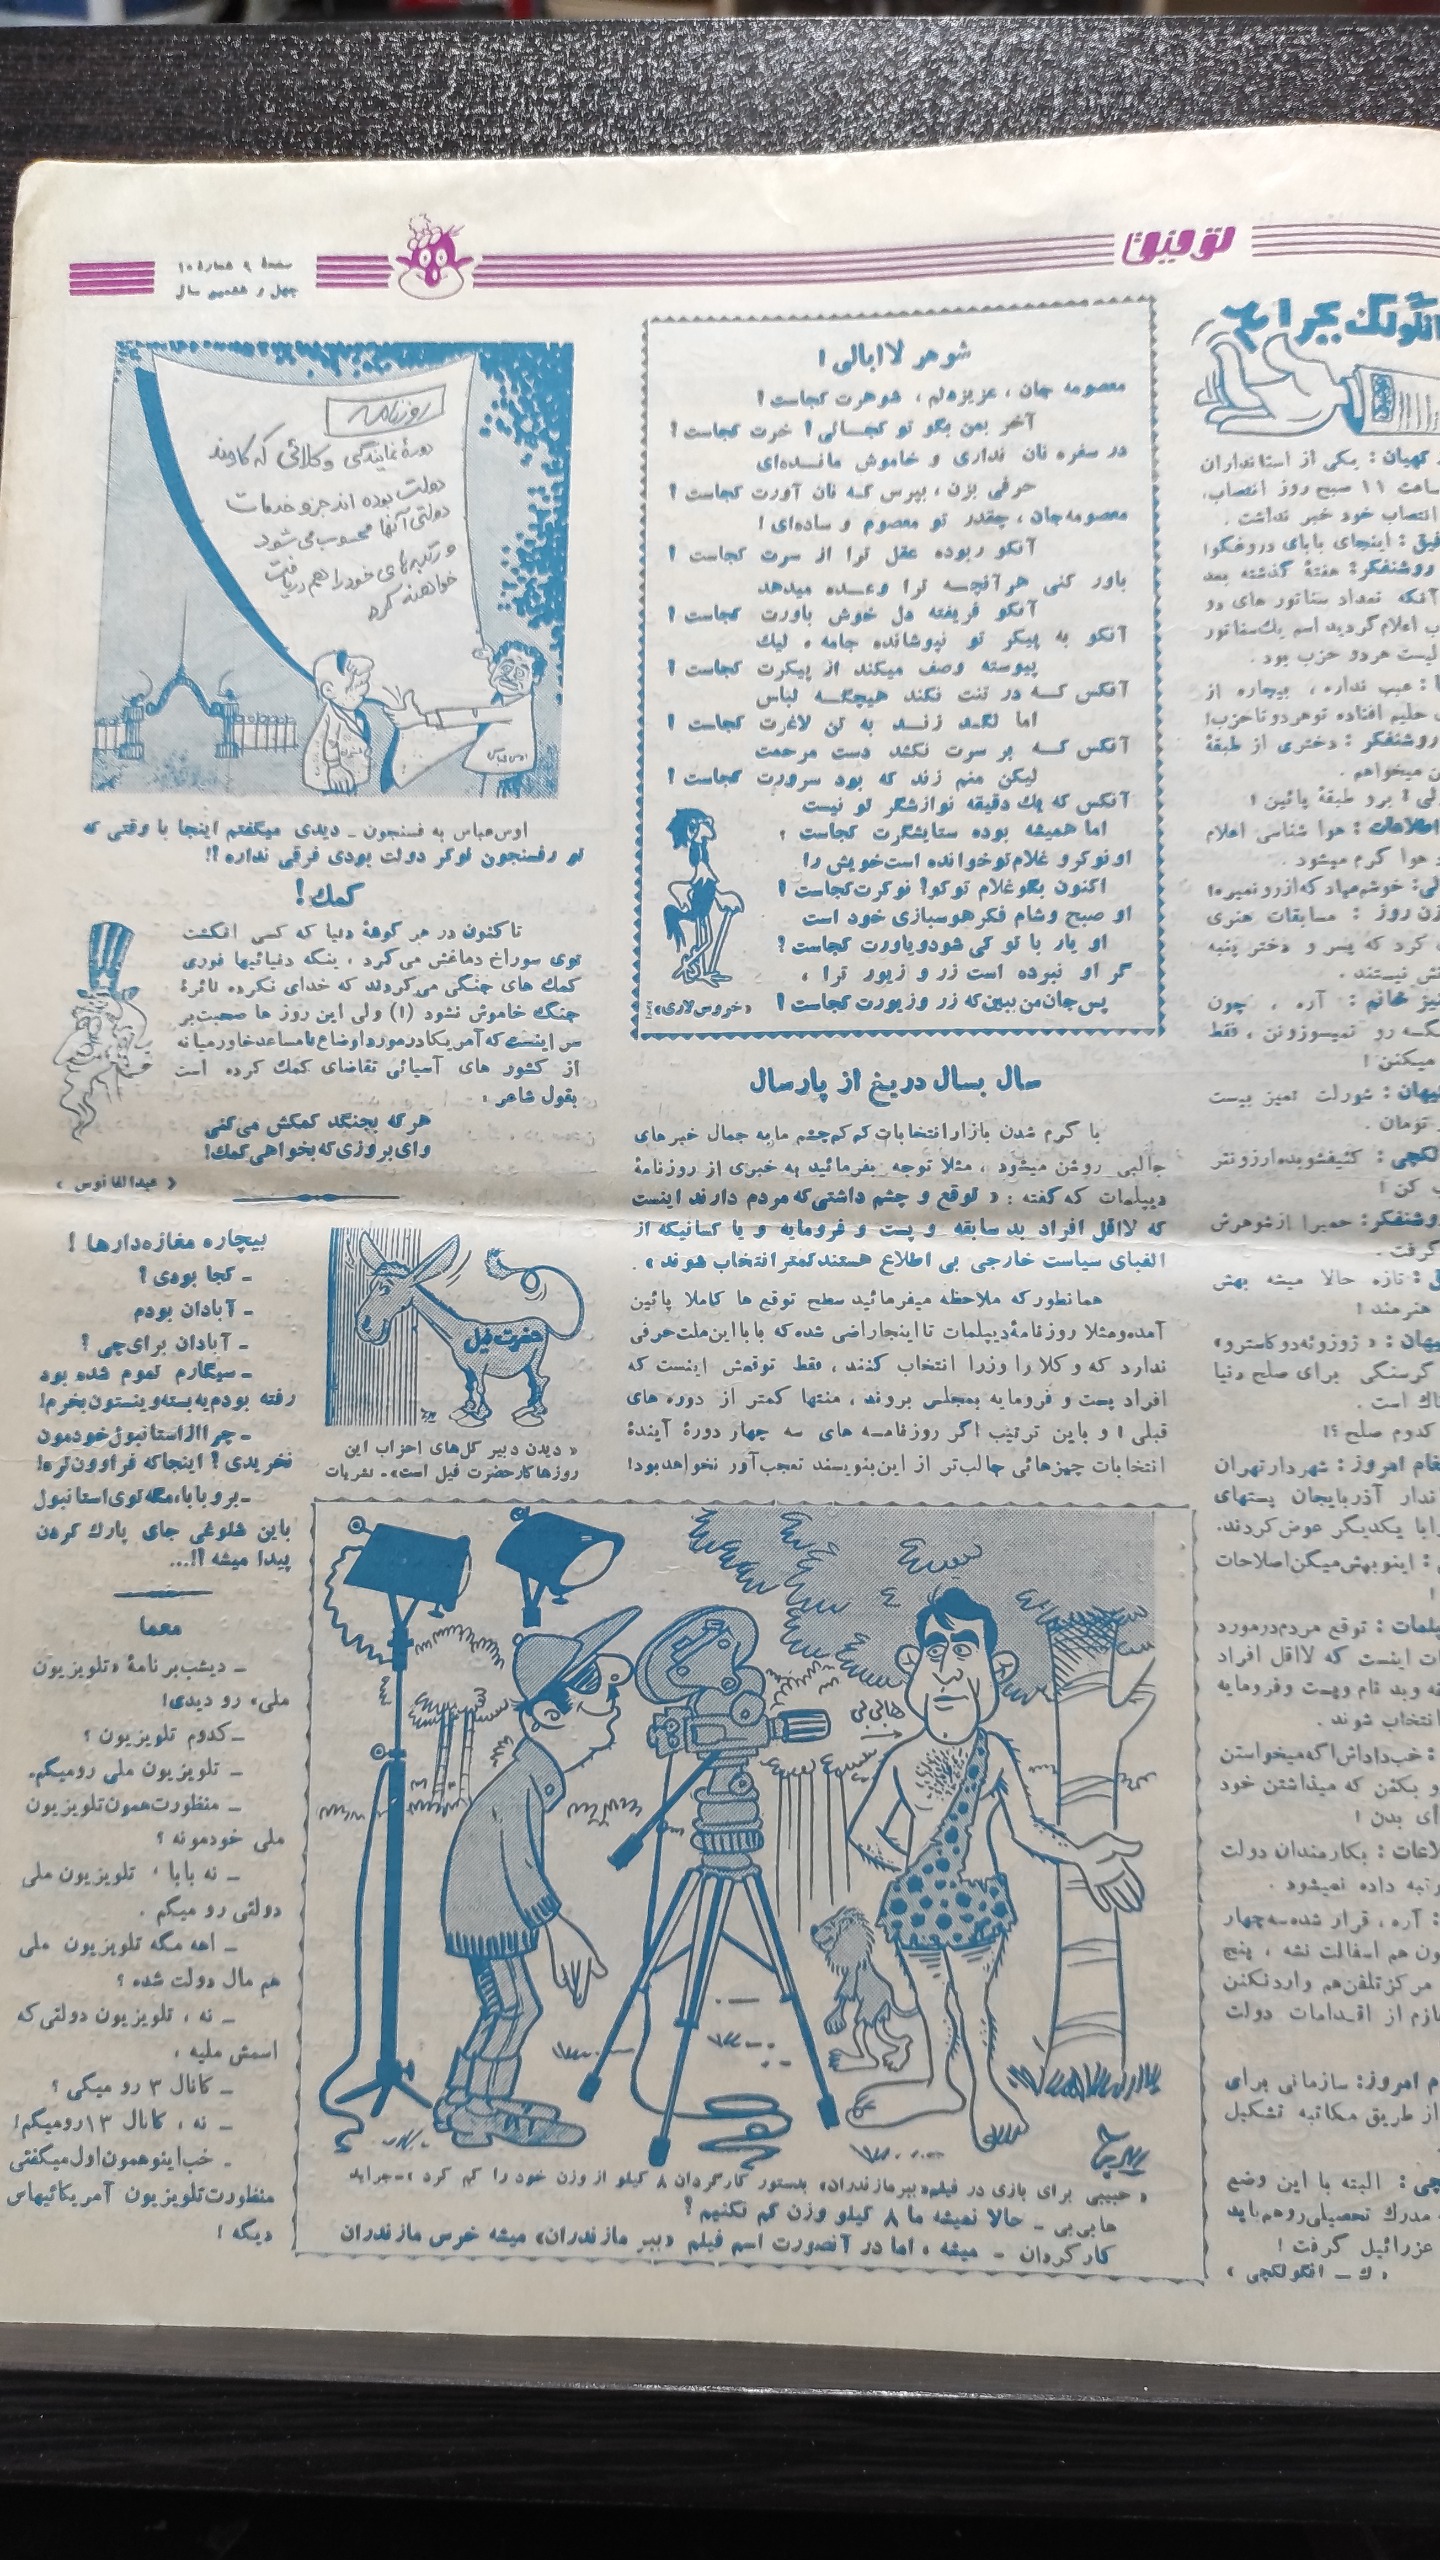 توفیق
صفحهٔ ۹ شمارهٔ ۱۰
چهل و ششمین سال
انگولک بچرا
کیهان : یکی از استانداران
ساعت ۱۱ صبح روز انتصاب،
انتصاب خود خبر نداشت .
توفیق : اینجای بابای دروغگو!
روشنفکر: هفتهٔ گذشته بعد
آنکه تعداد سناتور های دو
اعلام گردید اسم یک سناتور
لیست هر دو حزب بود .
: عیب نداره ، بیچاره از
حلیم افتاده تو هر دو تا حزب!
روشنفکر : دختری از طبقهٔ
میخواهم .
برو طبقهٔ پائین !
اطلاعات : هوا شناسی اعلام
هوا گرم میشود .
خوشم میاد که از رو نمیره!
زن روز : مسابقات هنری
کرد که پسر و دختر پنبه
نیستند .
خانم : آره ، چون
رو نمیسوزونن ، فقط
میکنن !
کیهان : شورلت تمیز بیست
تومان .
کثیفشو بده ارزونتر
کن !
روشنفکر: حمیرا از شوهرش
گرفت .
: تازه حالا میشه بهش
هنرمند !
کیهان : « ژوزوئه دو کاسترو»
گرسنگی برای صلح دنیا
است .
کدوم صلح ؟!
پیغام امروز : شهردار تهران
آذربایجان پستهای
را با یکدیگر عوض کردند.
: اینو بهش میگن اصلاحات
!
دیپلمات : توقع مردم در مورد
اینست که لااقل افراد
و بد نام و پست و فرومایه
انتخاب شوند .
: خب داداش اگه میخواستن
بکشن که میذاشتن خود
بدن !
اطلاعات : بکارمندان دولت
رتبه داده نمیشود .
: آره ، قرار شده سه چهار
هم اسفالت نشه ، پنج
مرکز تلفن هم وارد نکنن
از اقدامات دولت
امروز: سازمانی برای
از طریق مکاتبه تشکیل
: البته با این وضع
مدرک تحصیلی رو هم باید
عزرائیل گرفت !
« ك – انگولکچی »
شوهر لاابالی !
معصومه جان ، عزیز دلم ، شوهرت کجاست !
آخر بمن بگو تو کجـالی ! خرت کجاست !
در سفره نان نداری و خاموش مانـده‌ای
حرفی بزن ، بپرس کـه نان آورت کجاست !
معصومه‌جان ، چقدر تو معصوم و ساده‌ای !
آنکو ربوده عقل ترا از سرت کجاست !
باور کنی هر آنچـه ترا وعـده میدهد
آنکو فریفته دل خوش باورت کجاست !
آنکو به پیکر تو نپوشانده جامه ، لیك
پیوسته وصف میکند از پیکرت کجاست !
آنکس کـه در تنت نکند هیچگـه لباس
اما لگـد زنـد به تن لاغرت کجاست !
آنکس کـه بر سرت نکشد دست مرحمت
لیکن منم زند که بود سرورت کجاست !
آنکس که یك دقیقه نوازشگر تو نیست
اما همیشه بوده ستایشگرت کجاست ؟
او نوکر و غلام تو خوانده است خویش را
اکنون بگو غلام تو کو؟ نوکرت کجاست !
او صبح و شام فکر هوسبازی خود است
او یار با تو کی شود و یاورت کجاست ؟
گر او نبرده است زر و زیور ترا ،
پس جان من ببین که زر و زیورت کجاست !
«خروس لاری»
سال بسال دریغ از پارسال
با گرم شدن بازار انتخابات کم کم چشم ما به جمال خبر های
جالبی روشن میشود ، مثلا توجه بفرمائید به خبری از روزنامهٔ
دیپلمات که گفته : « توقع و چشم داشتی که مردم دارند اینست
که لااقل افراد بد سابقه و پست و فرومایه و یا کسانیکه از
الفبای سیاست خارجی بی اطلاع هستند کمتر انتخاب شوند » .
همانطور که ملاحظه میفرمائید سطح توقع ها کاملا پائین
آمده و مثلا روزنامهٔ دیپلمات تا اینجا راضی شده که بابا این ملت حرفی
ندارد که وکلا را وزرا انتخاب کنند ، فقط توقعش اینست که
افراد پست و فرومایه بمجلس بروند ، منتها کمتر از دوره های
قبلی ! و باین ترتیب اگر روزنامـه های سه چهار دورهٔ آیندهٔ
انتخابات چیزهائی جالب‌تر از این بنویسند تعجب‌آور نخواهد بود!
روزنامه
دورهٔ نمایندگی وکلائی که کاندید
دولت بوده اند جزو خدمات
دولتی آنها محسوب می شود
و رتبه های خود را هم دریافت
خواهند کرد
اوس‌عباس به فسنجون – دیدی میگفتم اینجا با وقتی که
تو رفسنجون نوکر دولت بودی فرقی نداره ؟!
کمك !
تا کنون در هر گوشهٔ دنیا که کسی انگشت
توی سوراخ دماغش می کرد ، ینگه دنیائیها فوری
کمك های جنگی می کردند که خدای نکرده نائرهٔ
جنگ خاموش نشود (!) ولی این روز ها صحبت بر
سر اینست که آمریکا در مورد اوضاع نامساعد خاورمیانه
از کشور های آسیائی تقاضای کمك کرده است
بقول شاعر :
هر که بجنگد کمکش می کنی
وای بروزی که بخواهی کمك!
« عبدالفانوس »
بیچاره مغازه‌دارها !
– کجا بودی ؟
– آبادان بودم
– آبادان برای چی ؟
– سیگارم تموم شده بود
رفته بودم یه بسته وینستون بخرم!
– چرا از استانبول خودمون
نخریدی ؟ اینجا که فراوون تره!
– برو بابا، مگه توی استانبول
باین شلوغی جای پارك کردن
پیدا میشه ؟!...
حضرت فیل
« دیدن دبیر کل‌های احزاب این
روزها کار حضرت فیل است» – نشریات
معما
– دیشب برنامهٔ «تلویزیون
ملی» رو دیدی!
– کدوم تلویزیون ؟
– تلویزیون ملی رو میگم.
– منظورت همون تلویزیون
ملی خودمونه ؟
– نه بابا ، تلویزیون ملی
دولتی رو میگم .
– اهه مگه تلویزیون ملی
هم مال دولت شده ؟
– نه ، تلویزیون دولتی که
اسمش ملیه ،
– کانال ۳ رو میگی ؟
– نه ، کانال ۱۳ رو میگم!
– خب اینو همون اول میگفتی
منظورت تلویزیون آمریکائیهاس
دیگه !
هابی‌بی
ایرج
« حبیبی برای بازی در فیلم «ببر مازندران» بدستور کارگردان ۸ کیلو از وزن خود را کم کرد » – جراید
هابی‌بی – حالا نمیشه ما ۸ کیلو وزن کم نکنیم ؟
کارگردان – میشه ، اما در آنصورت اسم فیلم «ببر مازندران» میشه خرس مازندران